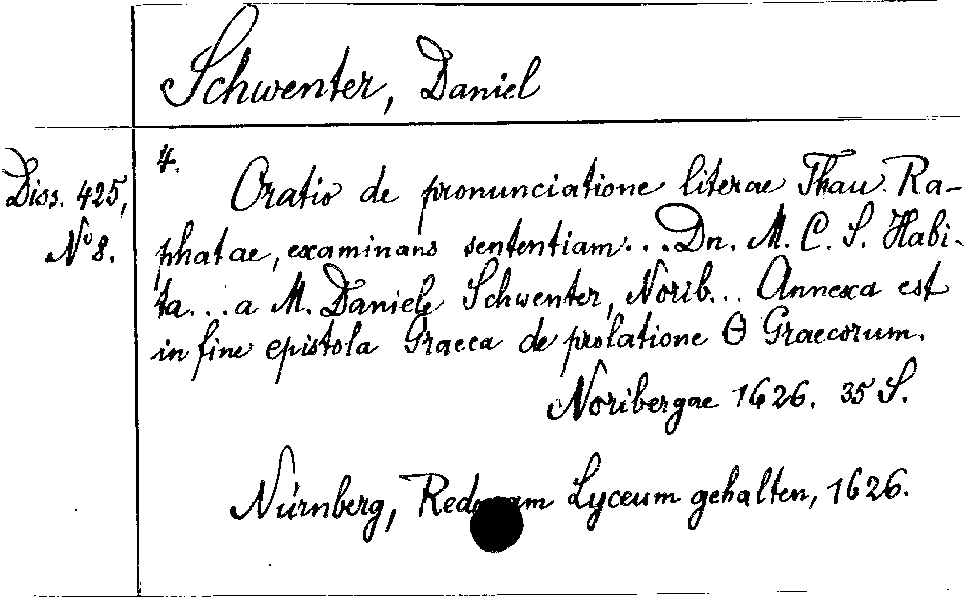 Schwenter, Daniel
Diss. 425,
No 8.
4.
Oratio de pronunciatione literae Thau Ra-
phatae, examinans sententiam... Dn. M. C. S. Habi-
ta... a M. Daniele Schwenter, Norib... Annexa est
in fine epistola Graeca de prolatione Θ Graecorum.
Noribergae 1626. 35 S.
Nürnberg, Rede am Lyceum gehalten, 1626.